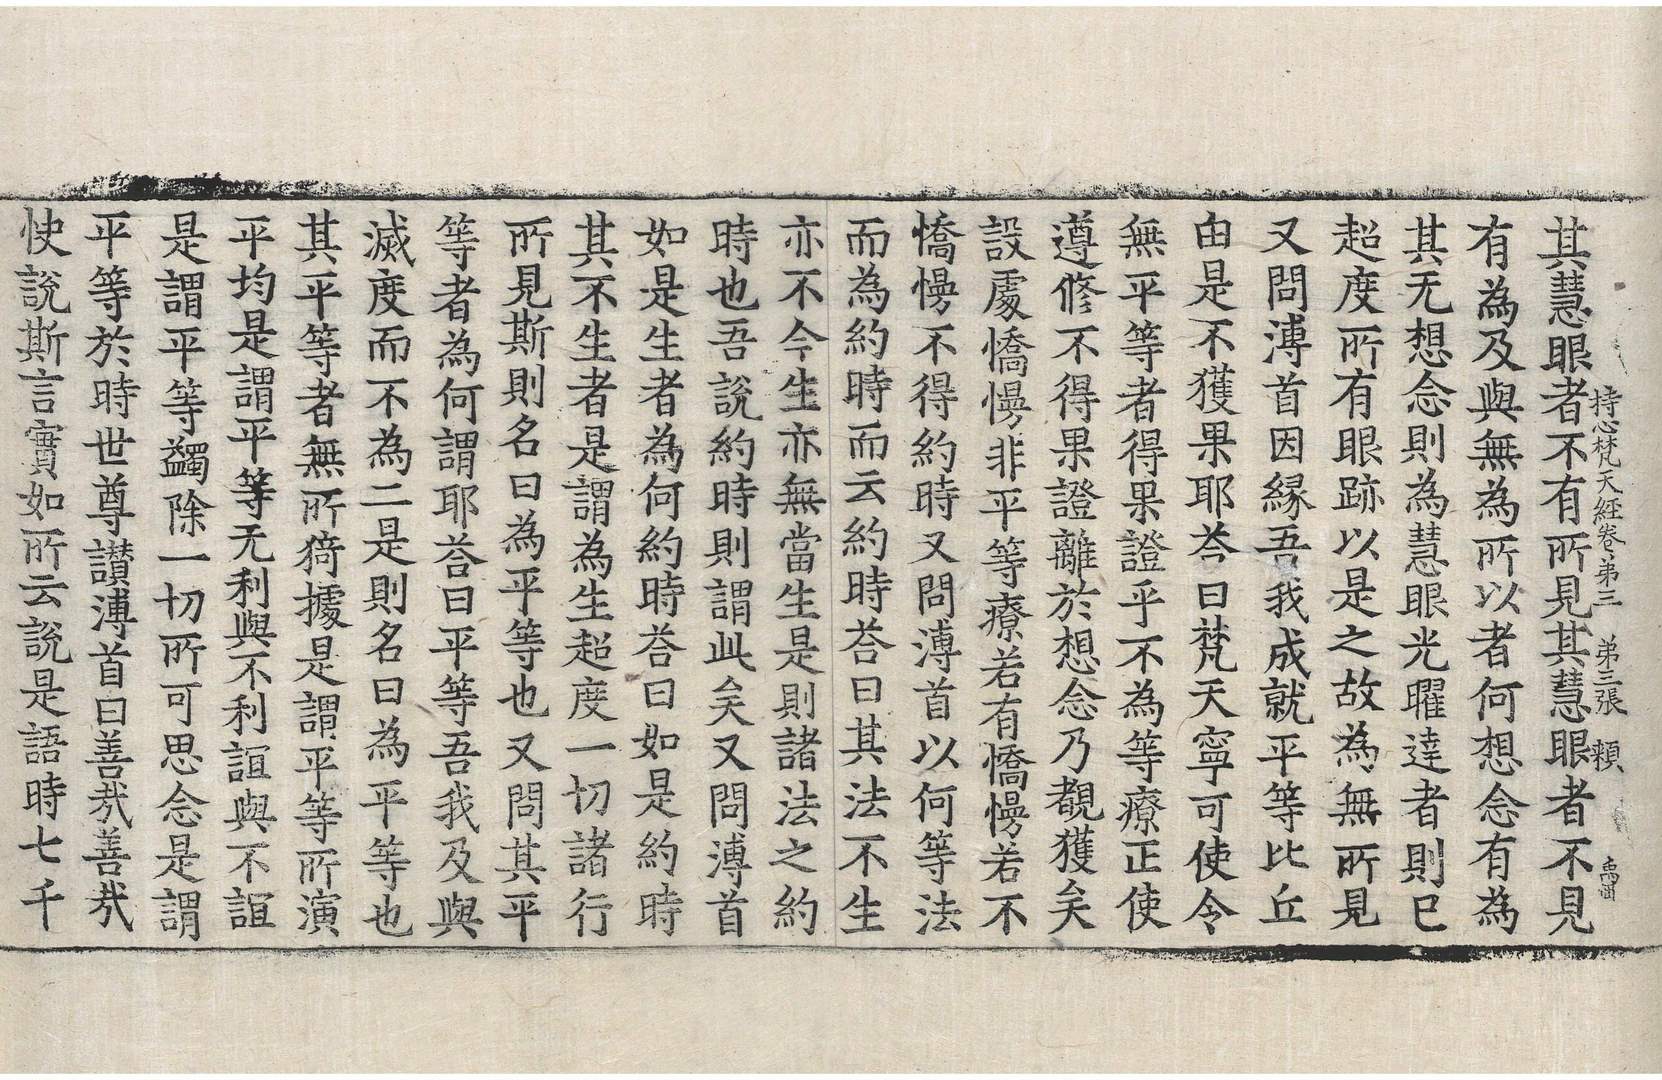 持心梵天經卷弟三 弟三張 頼
其慧眼者不有所見其慧眼者不見
有為及與無為所以者何想念有為
其无想念則為慧眼光曜達者則已
超度所有眼跡以是之故為無所見
又問溥首因縁吾我成就平等比丘
由是不獲果耶荅曰梵天寧可使令
無平等者得果證乎不為等療正使
遵修不得果證離於想念乃覩獲矣
設處憍慢非平等療若有憍慢若不
憍慢不得約時又問溥首以何等法
而為約時而云約時荅曰其法不生
亦不今生亦無當生是則諸法之約
時也吾說約時則謂此矣又問溥首
如是生者為何約時荅曰如是約時
其不生者是謂為生超度一切諸行
所見斯則名曰為平等也又問其平
等者為何謂耶荅曰平等吾我及與
滅度而不為二是則名曰為平等也
其平等者無所猗據是謂平等所演
平均是謂平等无利與不利誼與不誼
是謂平等蠲除一切所可思念是謂
平等於時世尊讃溥首曰善㢤善㢤
快說斯言實如所云說是語時七千